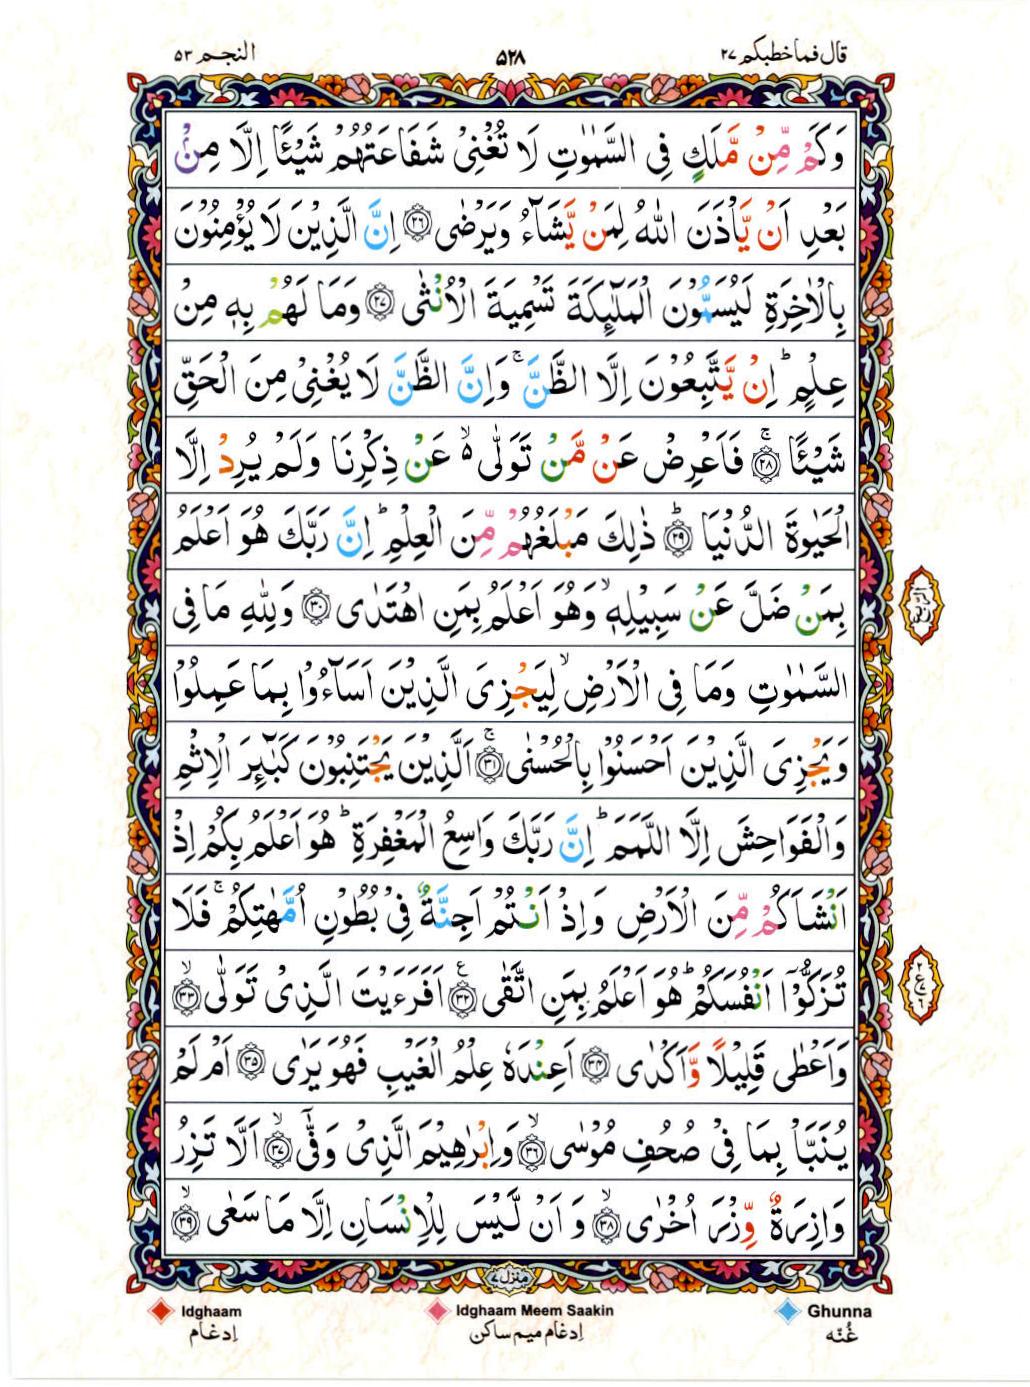 قال فما خطبکم ۲۷
۵۲۸
النجم ۵۳
وَكَمْ مِّنْ مَّلَكٍ فِی السَّمٰوٰتِ لَا تُغْنِیْ شَفَاعَتُهُمْ شَیْـًٔا اِلَّا مِنْۢ
بَعْدِ اَنْ یَّاْذَنَ اللّٰهُ لِمَنْ یَّشَآءُ وَیَرْضٰی ﴿۲۶﴾ اِنَّ الَّذِیْنَ لَا یُؤْمِنُوْنَ
بِالْاٰخِرَةِ لَیُسَمُّوْنَ الْمَلٰٓئِكَةَ تَسْمِیَةَ الْاُنْثٰی ﴿۲۷﴾ وَمَا لَهُمْ بِهٖ مِنْ
عِلْمٍ ؕ اِنْ یَّتَّبِعُوْنَ اِلَّا الظَّنَّ ۚ وَاِنَّ الظَّنَّ لَا یُغْنِیْ مِنَ الْحَقِّ
شَیْـًٔا ﴿ۚ۲۸﴾ فَاَعْرِضْ عَنْ مَّنْ تَوَلّٰی ۙ۬ عَنْ ذِكْرِنَا وَلَمْ یُرِدْ اِلَّا
الْحَیٰوةَ الدُّنْیَا ﴿ؕ۲۹﴾ ذٰلِكَ مَبْلَغُهُمْ مِّنَ الْعِلْمِ ؕ اِنَّ رَبَّكَ هُوَ اَعْلَمُ
بِمَنْ ضَلَّ عَنْ سَبِیْلِهٖ ۙ وَهُوَ اَعْلَمُ بِمَنِ اهْتَدٰی ﴿۳۰﴾ وَلِلّٰهِ مَا فِی
السَّمٰوٰتِ وَمَا فِی الْاَرْضِ ۙ لِیَجْزِیَ الَّذِیْنَ اَسَآءُوْا بِمَا عَمِلُوْا
وَیَجْزِیَ الَّذِیْنَ اَحْسَنُوْا بِالْحُسْنٰی ﴿ۚ۳۱﴾ اَلَّذِیْنَ یَجْتَنِبُوْنَ كَبٰٓئِرَ الْاِثْمِ
وَالْفَوَاحِشَ اِلَّا اللَّمَمَ ؕ اِنَّ رَبَّكَ وَاسِعُ الْمَغْفِرَةِ ؕ هُوَ اَعْلَمُ بِكُمْ اِذْ
اَنْشَاَكُمْ مِّنَ الْاَرْضِ وَاِذْ اَنْتُمْ اَجِنَّةٌ فِیْ بُطُوْنِ اُمَّهٰتِكُمْ ۚ فَلَا
تُزَكُّوْۤا اَنْفُسَكُمْ ؕ هُوَ اَعْلَمُ بِمَنِ اتَّقٰی ﴿۳۲﴾ اَفَرَءَیْتَ الَّذِیْ تَوَلّٰی ﴿ۙ۳۳﴾
وَاَعْطٰی قَلِیْلًا وَّاَكْدٰی ﴿۳۴﴾ اَعِنْدَهٗ عِلْمُ الْغَیْبِ فَهُوَ یَرٰی ﴿۳۵﴾ اَمْ لَمْ
یُنَبَّاْ بِمَا فِیْ صُحُفِ مُوْسٰی ﴿ۙ۳۶﴾ وَاِبْرٰهِیْمَ الَّذِیْ وَفّٰۤی ﴿ۙ۳۷﴾ اَلَّا تَزِرُ
وَازِرَةٌ وِّزْرَ اُخْرٰی ﴿ۙ۳۸﴾ وَاَنْ لَّیْسَ لِلْاِنْسَانِ اِلَّا مَا سَعٰی ﴿ۙ۳۹﴾
منزل ۷
Idghaam
ادغام
Idghaam Meem Saakin
ادغام میم ساکن
Ghunna
غُنّہ